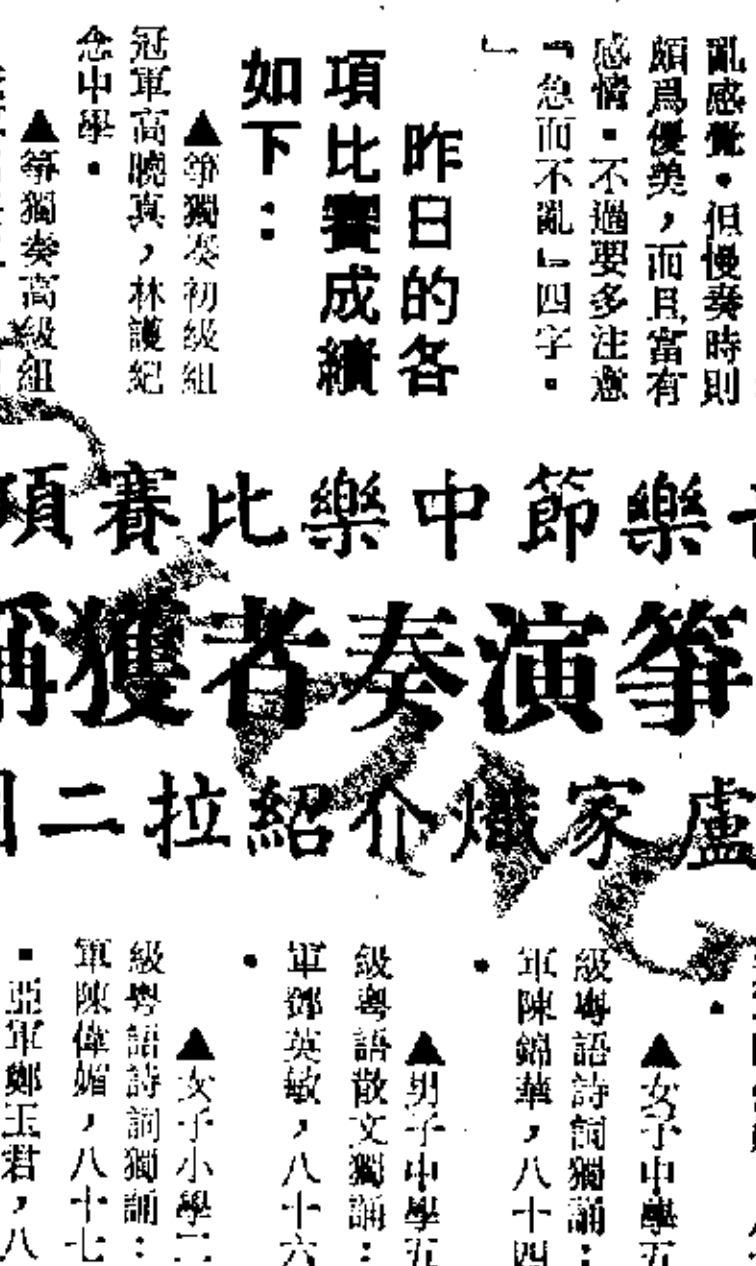 亂感覺。但慢奏時則
頗爲優美，而且富有
感情。不過要多注意
『急而不亂』四字。
」
昨日的各
項比賽成績
如下：
▲箏獨奏初級組
冠軍高曉真，林護紀
念中學。
▲箏獨奏高級組
樂節中樂比賽項
箏演奏者獲稱
盧家熾介紹拉二
▲女子中學五
級粵語詩詞獨誦：
軍陳錦華，八十四
。
▲男子中學五
級粵語散文獨誦：
軍鄧英敏，八十六
。
▲女子小學二
級粵語詩詞獨誦：
軍陳偉媚，八十七
。亞軍鄭玉君，八